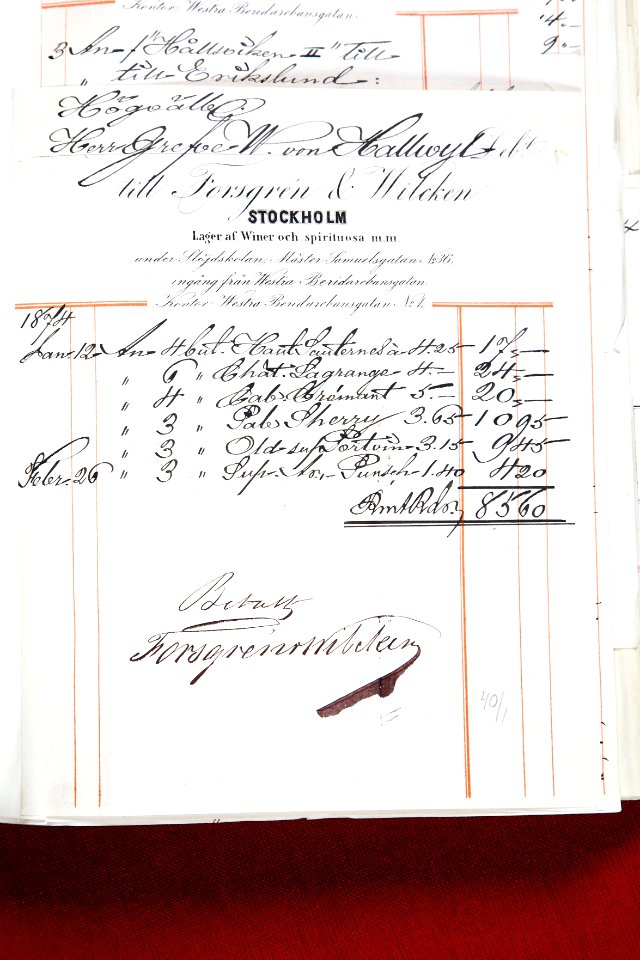 Kontor Westra Beridarebansgatan
4 "-
3 An f "Hållsviken II" till 9 "-
" till Erikslund :
Högvälb.
Herr Grefve W. von Hallwyl Debt
till Forsgrén & Wilcken
STOCKHOLM
Lager af Winer och spirituosa m.m.
under Slöjdskolan Mäster-Samuelsgatan № 36.
ingång från Westra Beridarebansgatan
Kontor Westra Beridarebansgatan № 4.
1874
Jan. 12 An 4 but. Haut Sauternes à 4.25 17 "-
" 6 " Chât. Lagrange 4.- 24 "-
" 4 " Cab. Crémant 5.- 20 "-
" 3 " Pale Sherry 3.65 10 95
" 3 " Old sup Portvin 3.15 9 45
Febr. 26 " 3 " Sup. Punsch 1.40 4 20
RmtRdr. 85 60
Betalt
Forsgrén & Wilcken
40/1